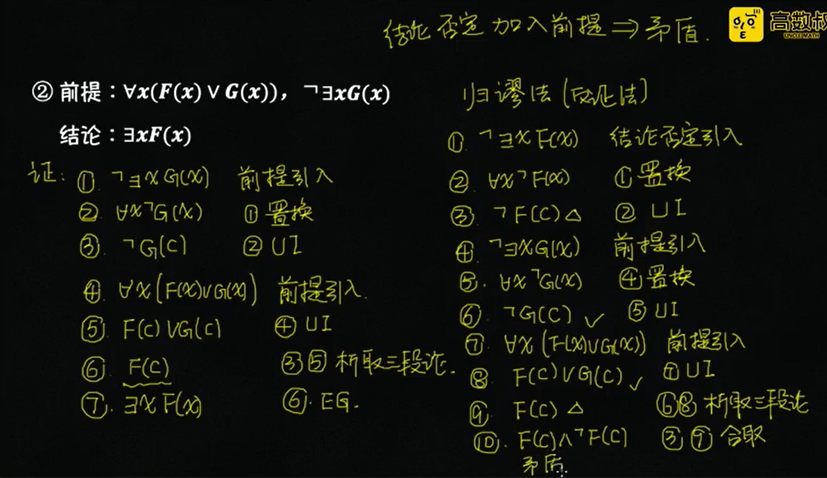 结论否定加入前提⇒矛盾.
高数叔
UNCLE MATH
② 前提：∀x(F(x)∨G(x))，¬∃xG(x)
结论：∃xF(x)
证: ① ¬∃xG(x) 前提引入
② ∀x¬G(x) ①置换
③ ¬G(c) ②UI
④ ∀x(F(x)∨G(x)) 前提引入.
⑤ F(c)∨G(c) ④UI
⑥ F(c) ③⑤析取三段论.
⑦ ∃xF(x) ⑥.EG.
归谬法(反证法)
① ¬∃xF(x) 结论否定引入
② ∀x¬F(x) ①置换
③ ¬F(c)△ ②UI
④ ¬∃xG(x) 前提引入
⑤. ∀x¬G(x) ④置换
⑥ ¬G(c) ✓ ⑤UI
⑦. ∀x(F(x)∨G(x)) 前提引入
⑧ F(c)∨G(c) ✓ ⑦UI
⑨ F(c)△ ⑥⑧析取三段论
⑩. F(c)∧¬F(c) ③⑨合取
矛盾